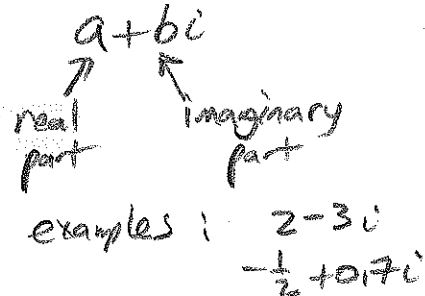 a+bi
real part
imaginary part
examples : 2-3i
-1/2+0,7i